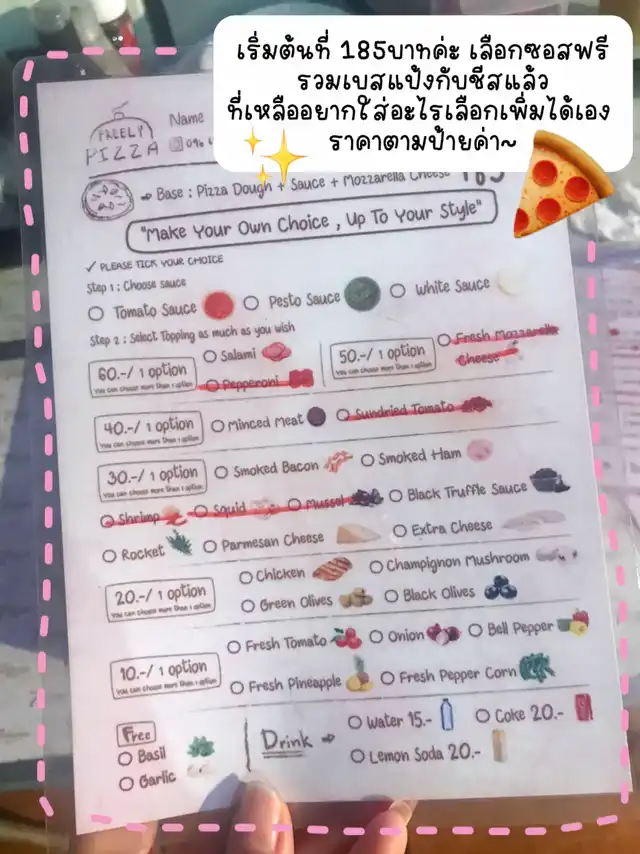 เริ่มต้นที่ 185บาทค่ะ เลือกซอสฟรี
รวมเบสแป้งกับชีสแล้ว
ที่เหลืออยากใส่อะไรเลือกเพิ่มได้เอง
ราคาตามป้ายค่า~
FREELY
PIZZA
Name
Base : Pizza Dough + Sauce + Mozzarella Cheese 185
"Make Your Own Choice , Up To Your Style"
✓ PLEASE TICK YOUR CHOICE
Step 1 : Choose sauce
Tomato Sauce Pesto Sauce White Sauce
Step 2 : Select Topping as much as you wish
60.-/ 1 option
You can choose more than 1 option
Salami
Pepperoni
50.-/ 1 option
You can choose more than 1 option
Fresh Mozzarella
Cheese
40.-/ 1 option
You can choose more than 1 option
Minced Meat Sundried Tomato
30.-/ 1 option
You can choose more than 1 option
Smoked Bacon Smoked Ham
Shrimp Squid Mussel Black Truffle Sauce
Rocket Parmesan Cheese Extra Cheese
20.-/ 1 option
You can choose more than 1 option
Chicken Champignon Mushroom
Green Olives Black Olives
10.-/ 1 option
You can choose more than 1 option
Fresh Tomato Onion Bell Pepper
Fresh Pineapple Fresh Pepper Corn
Free
Basil
Garlic
Drink
Water 15.- Coke 20.-
Lemon Soda 20.-